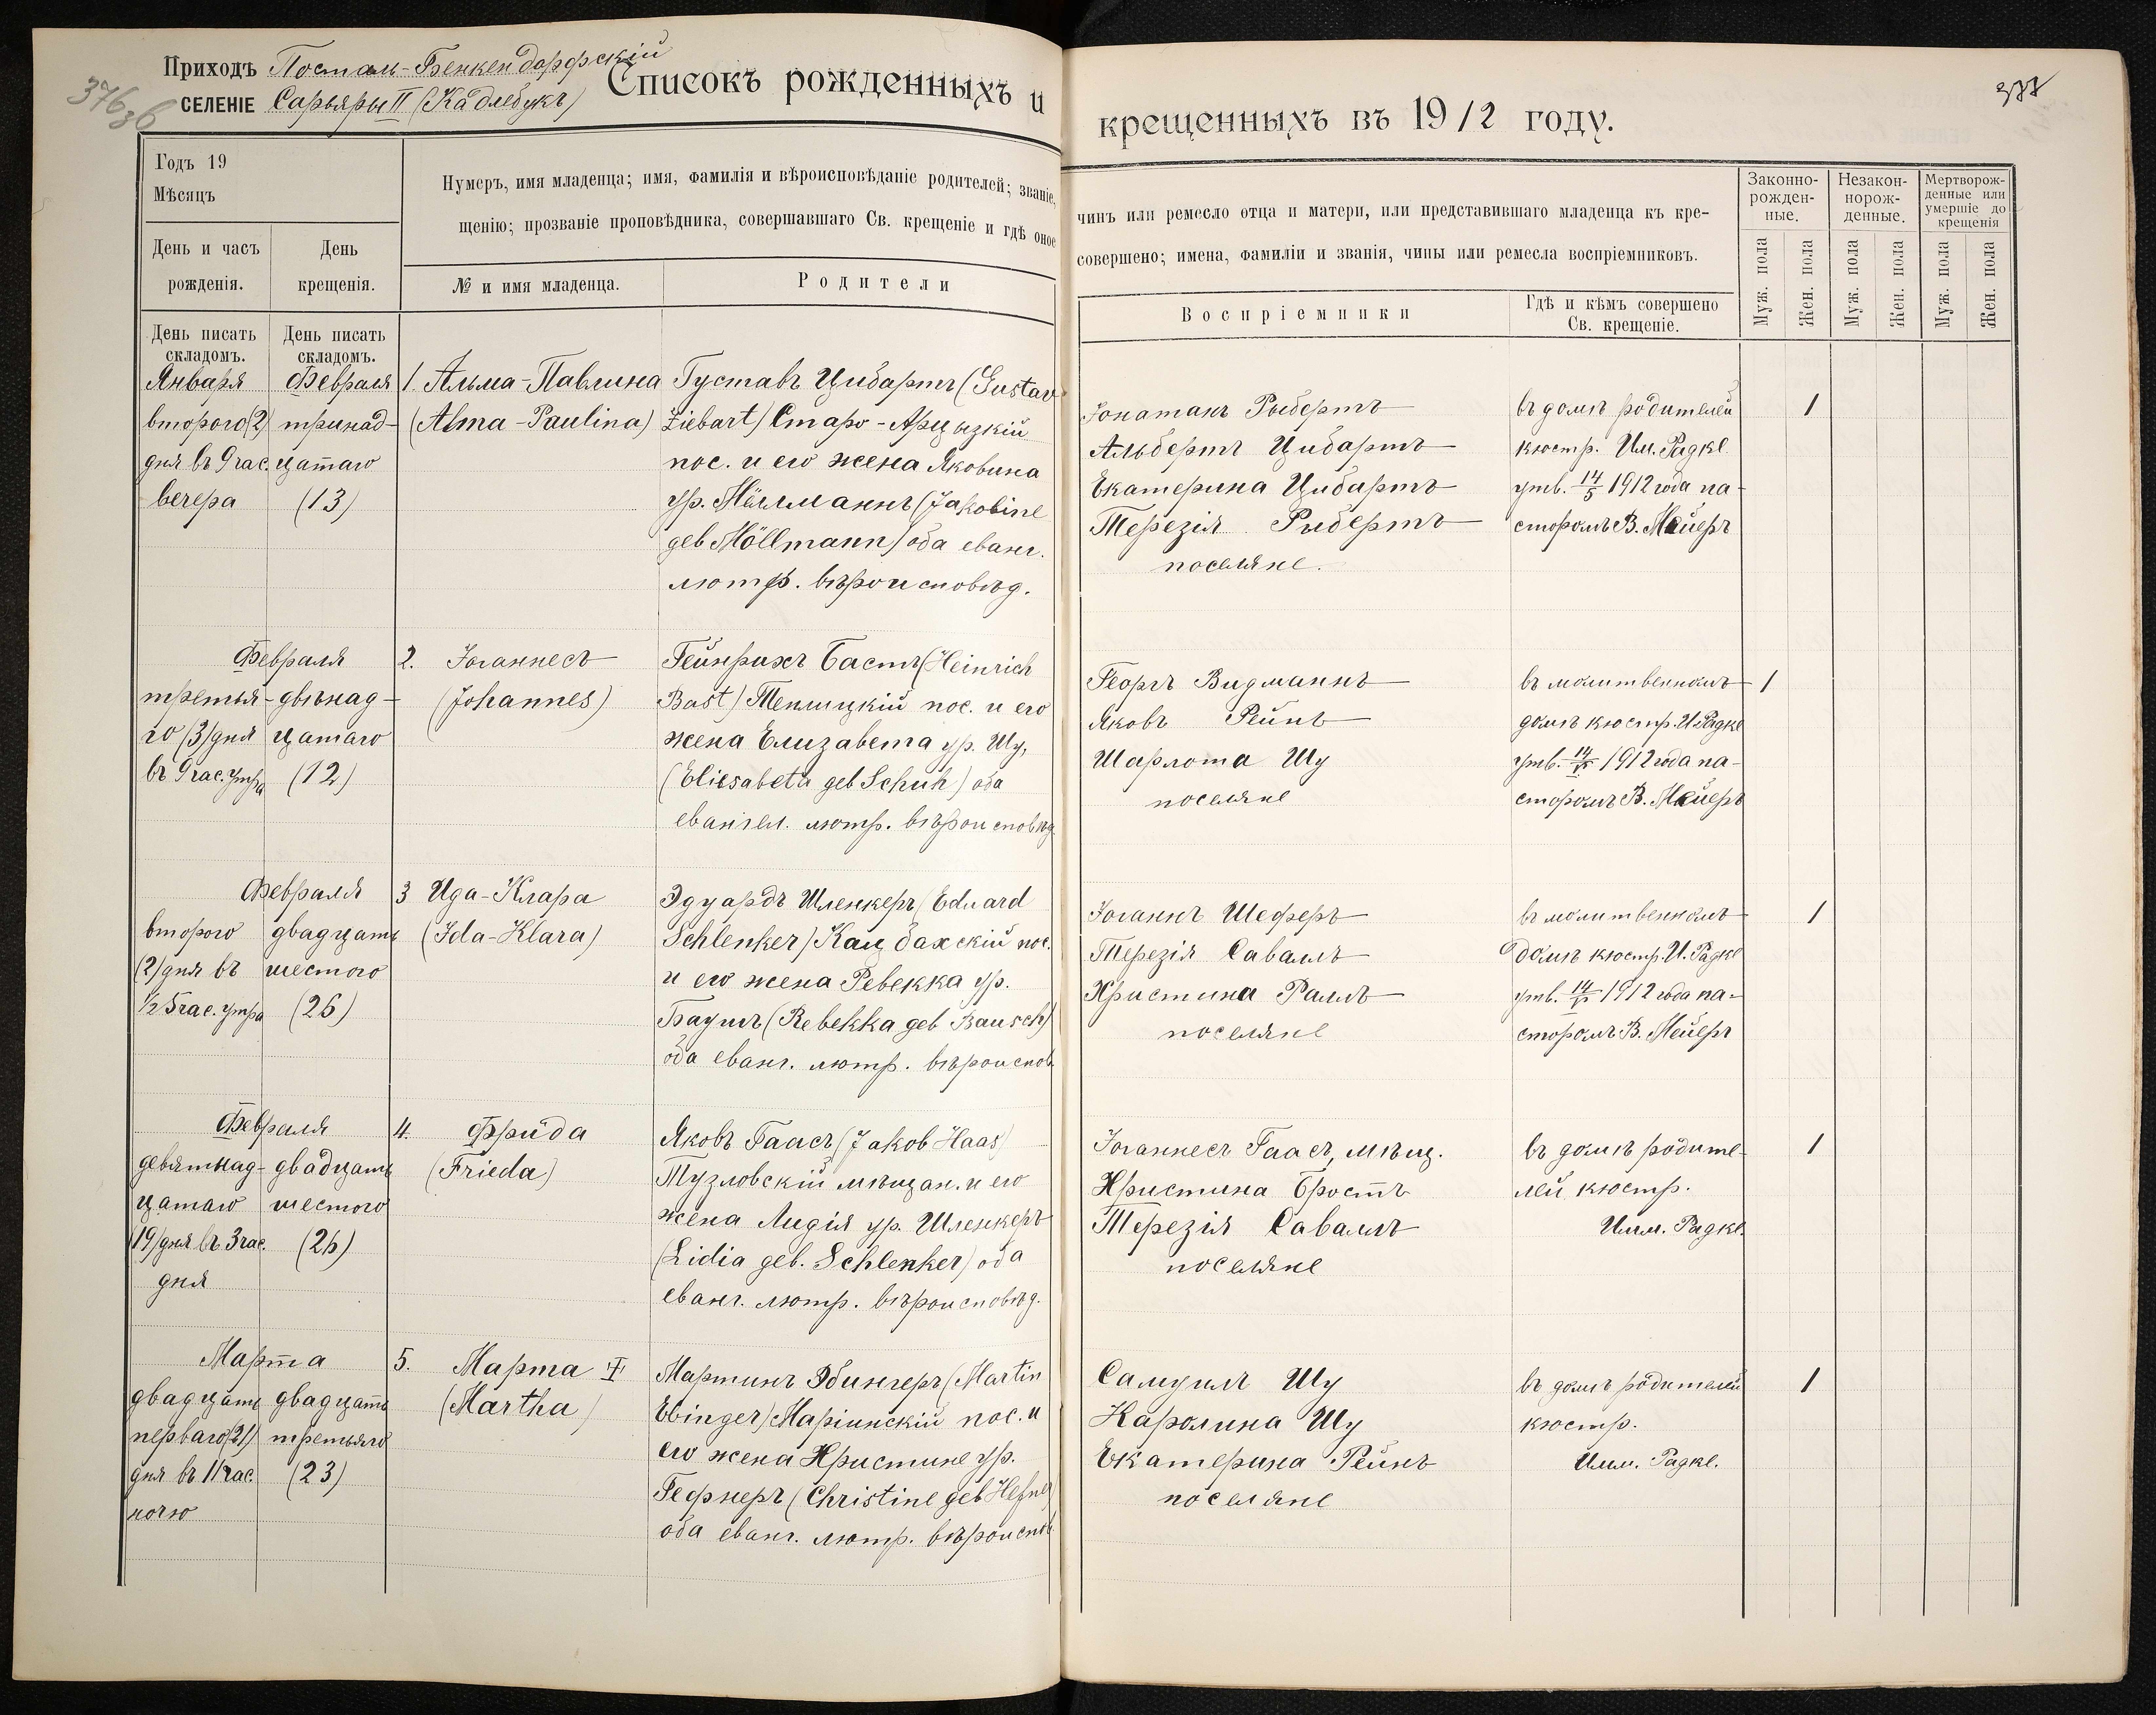 376
36
Приходъ Посталь-Бенкендорфскій
СЕЛЕНІЕ Сарьяры II (Кадлебукъ)
Списокъ рожденныхъ и
крещенныхъ въ 1912 году.
377
Годъ 19
Мѣсяцъ
День и часъ рожденія.
День крещенія.
Нумеръ, имя младенца; имя, фамилія и вѣроисповѣданіе родителей; званіе,
щенію; прозваніе проповѣдника, совершавшаго Св. крещеніе и гдѣ оное
№ и имя младенца.
Родители
чинъ или ремесло отца и матери, или представившаго младенца къ кре-
совершено; имена, фамиліи и званія, чины или ремесла воспріемниковъ.
Воспріемники
Гдѣ и кѣмъ совершено
Св. крещеніе.
Законно-
рожден-
ные.
Незакон-
норож-
денные.
Мертворож-
денные или
умершіе до
крещенія
Муж. пола
Жен. пола
Муж. пола
Жен. пола
Муж. пола
Жен. пола
День писать
складомъ.
День писать
складомъ.
Января
второго (2)
дня въ 9 час.
вечера
Февраля
тринад-
цатаго
(13)
1. Альма-Павлина
(Alma-Paulina)
Густавъ Цибартъ (Gustav
Ziebart) Старо-Арцызкій
пос. и его жена Яковина
ур. Мёллманнъ (Jakobine
geb Möllmann) оба еванг.
лютр. вѣроисповѣд.
Іонатанъ Рыбертъ
Альбертъ Цибартъ
Екатерина Цибартъ
Терезія Рибертъ
поселяне.
въ домѣ родителей
кюстр. Им. Радке.
утв. 14/5 1912 года па-
сторомъ В. Мейеръ
1
Февраля
третья-
го (3) дня
въ 9 час. утра
двѣнад-
цатаго
(12)
2. Іоганнесъ
(Johannes)
Гейнрихъ Бастъ (Heinrich
Bast) Теплицкій пос. и его
жена Елизавета ур. Шу,
(Eliesabeta geb Schuh) оба
евангел. лютр. вѣроисповѣд.
Георгъ Видманнъ
Яковъ Рейнъ
Шарлота Шу
поселяне
въ молитвенномъ
домѣ кюстр. И. Радке
утв. 14/V 1912 года па-
сторомъ В. Мейеръ
1
Февраля
второго
(2) дня въ
1/2 5 час. утра
двадцать
шестого
(26)
3 Ида-Клара
(Ida-Klara)
Эдуардъ Шленкеръ (Eduard
Schlenker) Кацбахскій пос.
и его жена Ребекка ур.
Баушъ (Rebekka geb Bausch)
оба еванг. лютр. вѣроиспов.
Іоганнъ Шеферъ
Терезія Савалъ
Христина Раллъ
поселяне
въ молитвенномъ
домѣ кюстр. И. Радке
утв. 14/V 1912 года па-
сторомъ В. Мейеръ
1
Февраля
девятнад-
цатаго
(19) дня въ 3 час.
дня
двадцать
шестого
(26)
4. Фрида
(Frieda)
Яковъ Гаасъ (Jakob Haas)
Тузловскій мѣщан. и его
жена Лидія ур. Шленкеръ
(Lidia geb. Schlenker) оба
еванг. лютр. вѣроисповѣд.
Іоганнесъ Гаасъ, мѣщ.
Христина Бростъ
Терезія Савалъ
поселяне
въ домѣ родите-
лей кюстр.
Имм. Радке.
1
Марта
двадцать
перваго (21)
дня въ 11 час.
ночю
двадцать
третьяго
(23)
5. Марта
(Martha)
Мартинъ Эбингеръ (Martin
Ebinger) Маріинскій пос. и
его жена Христине ур.
Гефнеръ (Christine geb Hefner)
оба еванг. лютр. вѣроиспов
Самуилъ Шу
Каролина Шу
Екатерина Рейнъ
поселяне
въ домѣ родителей
кюстр.
Имм. Радке.
1